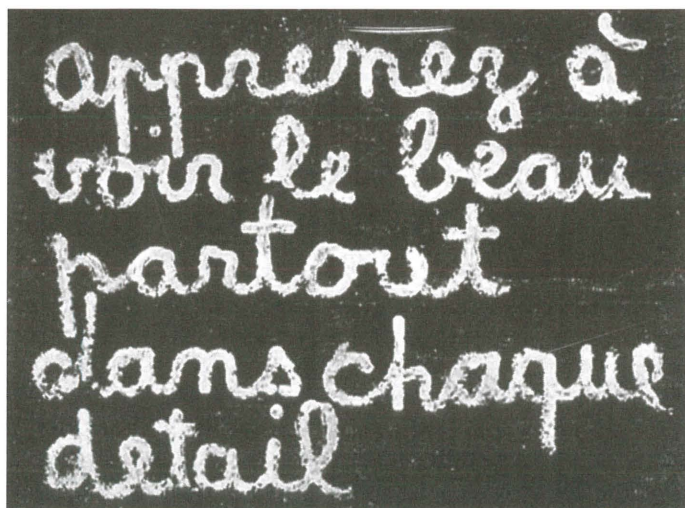 apprenez à
voir le beau
partout
dans chaque
detail